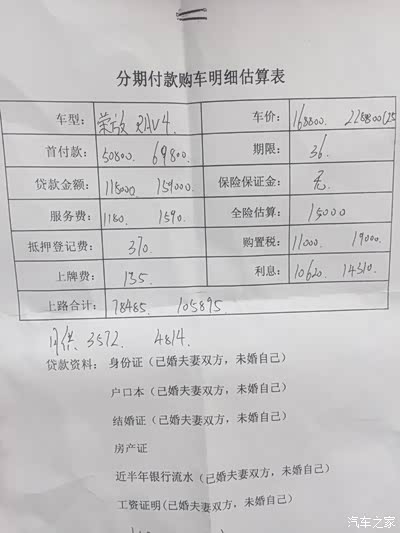 分期付款购车明细估算表
车型： 荣放 RAV4. 车价： 168800. 228800(25
首付款： 50800. 69800. 期限： 36.
贷款金额： 118000 159000. 保险保证金： 无.
服务费： 1180. 1590. 全险估算： 15000
抵押登记费： 370. 购置税： 11000. 19000.
上牌费： 135. 利息： 10620. 14310.
上路合计： 78485. 105895.
月供. 3572. 4814.
贷款资料： 身份证（已婚夫妻双方，未婚自己）
户口本（已婚夫妻双方，未婚自己）
结婚证（已婚夫妻双方，未婚自己）
房产证
近半年银行流水（已婚夫妻双方，未婚自己）
工资证明(已婚夫妻双方，未婚自己）
汽车之家